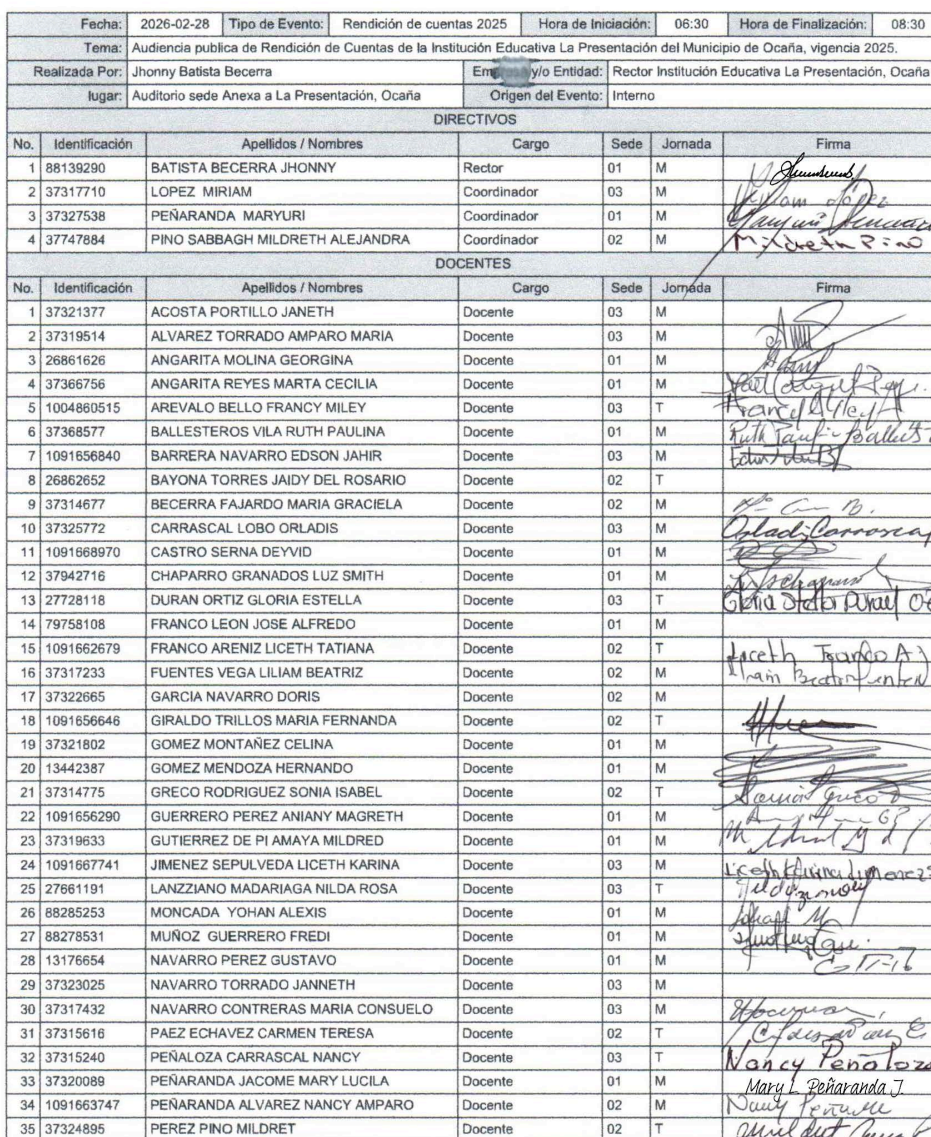 Fecha: 2026-02-28 Tipo de Evento: Rendición de cuentas 2025 Hora de Iniciación: 06:30 Hora de Finalización: 08:30
Tema: Audiencia publica de Rendición de Cuentas de la Institución Educativa La Presentación del Municipio de Ocaña, vigencia 2025.
Realizada Por: Jhonny Batista Becerra y/o Entidad: Rector Institución Educativa La Presentación, Ocaña
lugar: Auditorio sede Anexa a La Presentación, Ocaña Origen del Evento: Interno
DIRECTIVOS
No. Identificación Apellidos / Nombres Cargo Sede Jornada Firma
1 88139290 BATISTA BECERRA JHONNY Rector 01 M
2 37317710 LOPEZ MIRIAM Coordinador 03 M Miriam López
3 37327538 PEÑARANDA MARYURI Coordinador 01 M
4 37747884 PINO SABBAGH MILDRETH ALEJANDRA Coordinador 02 M Mildreth Pino
DOCENTES
No. Identificación Apellidos / Nombres Cargo Sede Jornada Firma
1 37321377 ACOSTA PORTILLO JANETH Docente 03 M
2 37319514 ALVAREZ TORRADO AMPARO MARIA Docente 03 M
3 26861626 ANGARITA MOLINA GEORGINA Docente 01 M
4 37366756 ANGARITA REYES MARTA CECILIA Docente 01 M
5 1004860515 AREVALO BELLO FRANCY MILEY Docente 03 T Francy Miley A
6 37368577 BALLESTEROS VILA RUTH PAULINA Docente 01 M Ruth Paulina
7 1091656840 BARRERA NAVARRO EDSON JAHIR Docente 03 M
8 26862652 BAYONA TORRES JAIDY DEL ROSARIO Docente 02 T
9 37314677 BECERRA FAJARDO MARIA GRACIELA Docente 02 M
10 37325772 CARRASCAL LOBO ORLADIS Docente 03 M
11 1091668970 CASTRO SERNA DEYVID Docente 01 M
12 37942716 CHAPARRO GRANADOS LUZ SMITH Docente 01 M
13 27728118 DURAN ORTIZ GLORIA ESTELLA Docente 03 T Gloria Stella Duran
14 79758108 FRANCO LEON JOSE ALFREDO Docente 01 M
15 1091662679 FRANCO ARENIZ LICETH TATIANA Docente 02 T Liceth Franco A
16 37317233 FUENTES VEGA LILIAM BEATRIZ Docente 02 M
17 37322665 GARCIA NAVARRO DORIS Docente 02 M
18 1091656646 GIRALDO TRILLOS MARIA FERNANDA Docente 02 T
19 37321802 GOMEZ MONTAÑEZ CELINA Docente 01 M
20 13442387 GOMEZ MENDOZA HERNANDO Docente 01 M
21 37314775 GRECO RODRIGUEZ SONIA ISABEL Docente 02 T
22 1091656290 GUERRERO PEREZ ANIANY MAGRETH Docente 01 M
23 37319633 GUTIERREZ DE PI AMAYA MILDRED Docente 01 M
24 1091667741 JIMENEZ SEPULVEDA LICETH KARINA Docente 03 M Liceth Karina Jimenez
25 27661191 LANZZIANO MADARIAGA NILDA ROSA Docente 03 T
26 88285253 MONCADA YOHAN ALEXIS Docente 01 M
27 88278531 MUÑOZ GUERRERO FREDI Docente 01 M
28 13176654 NAVARRO PEREZ GUSTAVO Docente 01 M
29 37323025 NAVARRO TORRADO JANNETH Docente 03 M
30 37317432 NAVARRO CONTRERAS MARIA CONSUELO Docente 03 M
31 37315616 PAEZ ECHAVEZ CARMEN TERESA Docente 02 T
32 37315240 PEÑALOZA CARRASCAL NANCY Docente 03 T Nancy Peñaloza
33 37320089 PEÑARANDA JACOME MARY LUCILA Docente 01 M Mary L. Peñaranda J.
34 1091663747 PEÑARANDA ALVAREZ NANCY AMPARO Docente 02 M
35 37324895 PEREZ PINO MILDRET Docente 02 T